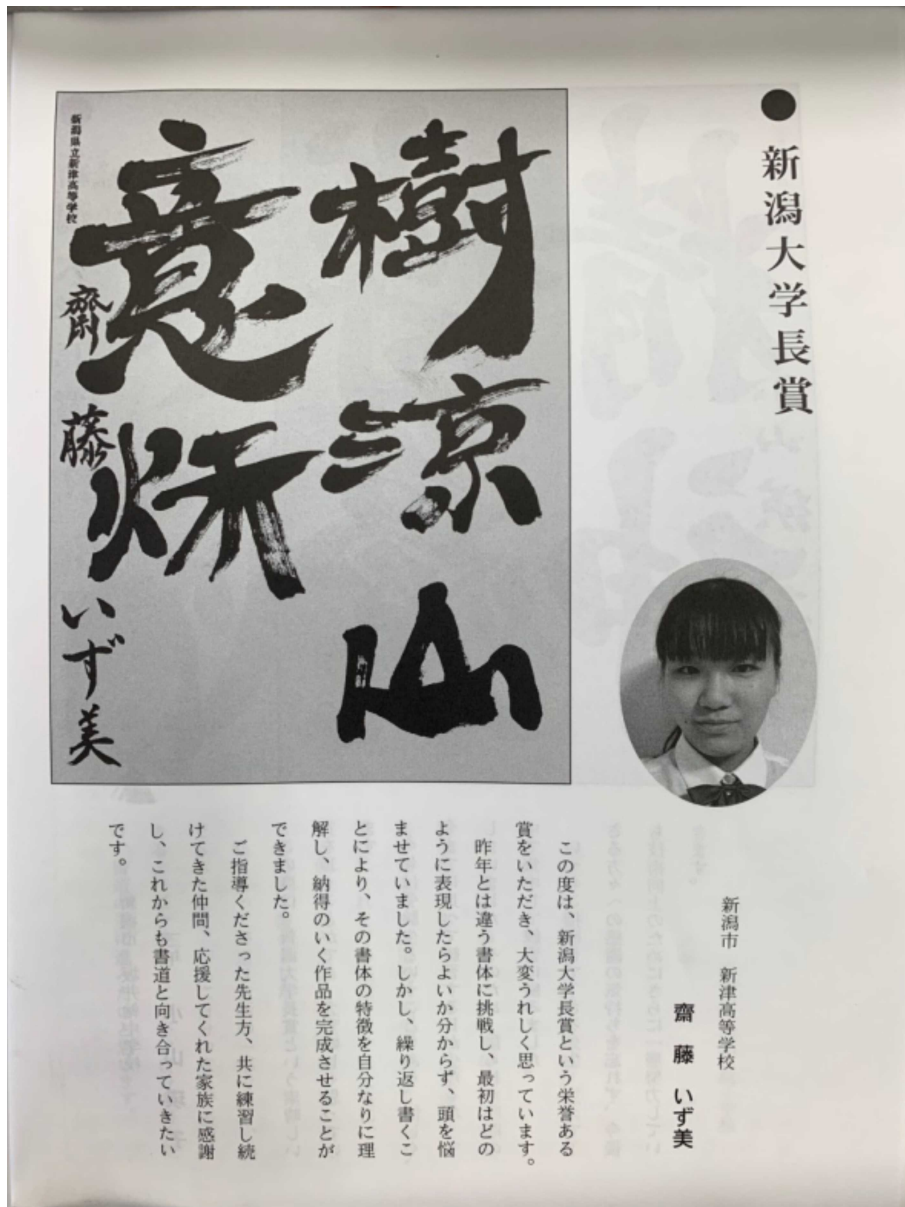 ● 新潟大学長賞
樹涼山
意炳
新潟県立新津高等学校
齋藤いず美
新潟市 新津高等学校
齋藤 いず美
この度は、新潟大学長賞という栄誉ある
賞をいただき、大変うれしく思っています。
昨年とは違う書体に挑戦し、最初はどの
ように表現したらよいか分からず、頭を悩
ませていました。しかし、繰り返し書くこ
とにより、その書体の特徴を自分なりに理
解し、納得のいく作品を完成させることが
できました。
ご指導くださった先生方、共に練習し続
けてきた仲間、応援してくれた家族に感謝
し、これからも書道と向き合っていきたい
です。